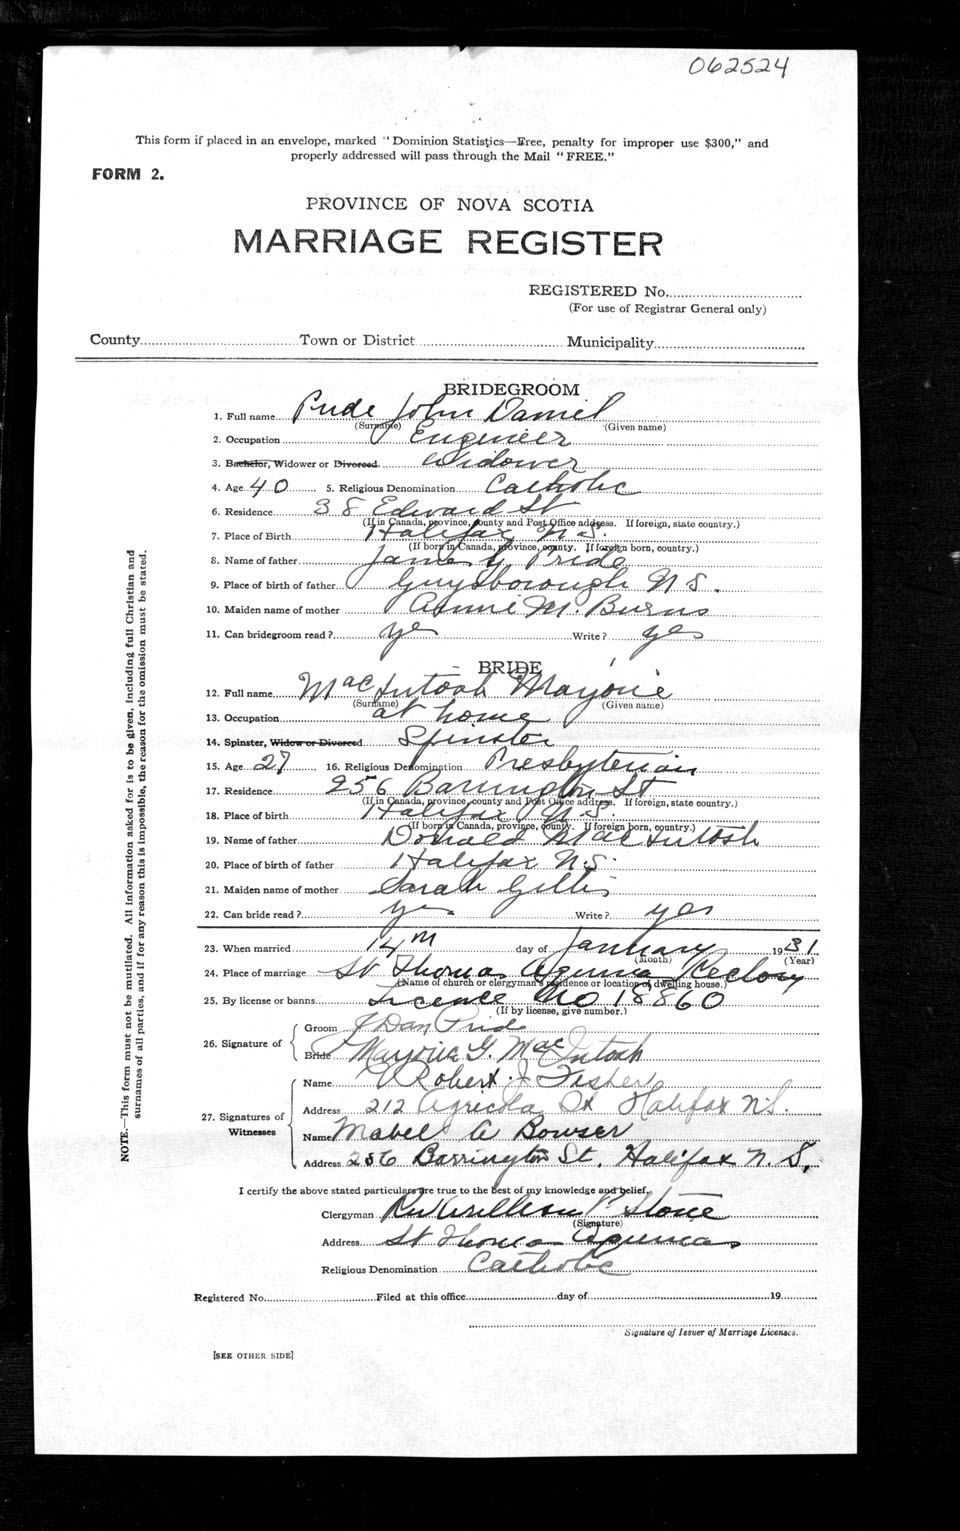 062524
This form if placed in an envelope, marked "Dominion Statistics—Free, penalty for improper use $300," and
properly addressed will pass through the Mail "FREE."
FORM 2.
PROVINCE OF NOVA SCOTIA
MARRIAGE REGISTER
REGISTERED No.
(For use of Registrar General only)
County Town or District Municipality
BRIDEGROOM
1. Full name Pride John Daniel
(Surname) (Given name)
2. Occupation Engineer
3. Bachelor, Widower or Divorced Widower
4. Age 40 5. Religious Denomination Catholic
6. Residence 38 Edward St
(If in Canada, province, county and Post Office address. If foreign, state country.)
7. Place of Birth Halifax N.S.
(If born in Canada, province, county. If foreign born, country.)
8. Name of father James Pride
9. Place of birth of father Guysborough N S.
10. Maiden name of mother Annie M. Burns
11. Can bridegroom read? yes Write? yes
BRIDE
12. Full name MacIntosh Marjorie
(Surname) (Given name)
13. Occupation at home
14. Spinster, Widow or Divorced Spinster
15. Age 27 16. Religious Denomination Presbyterian
17. Residence 256 Barrington St
(If in Canada, province, county and Post Office address. If foreign, state country.)
18. Place of birth Halifax N.S.
(If born in Canada, province, county. If foreign born, country.)
19. Name of father Donald MacIntosh
20. Place of birth of father Halifax N.S.
21. Maiden name of mother Sarah Gillis
22. Can bride read? yes Write? yes
23. When married 14th day of January 1931
(Month) (Year)
24. Place of marriage St Thomas Aquinas Rectory
(Name of church or clergyman's residence or location of dwelling house.)
25. By license or banns Licence No 18860
(If by license, give number.)
26. Signature of Groom J Dan Pride
Bride Marjorie G. MacIntosh
27. Signatures of Witnesses
Name Robert J Fisher
Address 212 Agricola St Halifax N.S.
Name Mabel A Bowser
Address 256 Barrington St. Halifax N. S.
I certify the above stated particulars are true to the best of my knowledge and belief.
Clergyman Rev William P. Stone
(Signature)
Address St Thomas Aquinas
Religious Denomination Catholic
Registered No. Filed at this office day of 19
Signature of Issuer of Marriage Licenses.
[SEE OTHER SIDE]
NOTE.—This form must not be mutilated. All information asked for is to be given, including full Christian and
surnames of all parties, and if for any reason this is impossible, the reason for the omission must be stated.